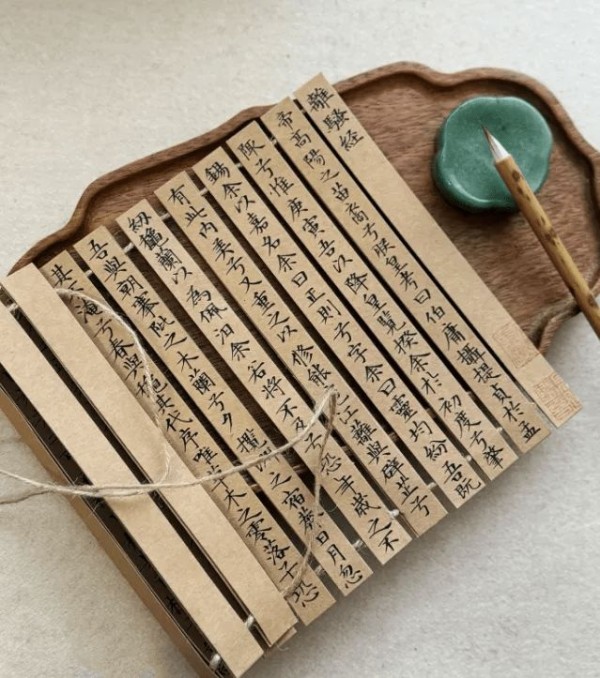 離騷經
帝高陽之苗裔兮朕皇考曰伯庸攝提貞於孟
陬兮惟庚寅吾以降皇覽揆余於初度兮肇
錫余以嘉名余曰正則兮字余曰靈均紛吾既
有此內美兮又重之以修能江蘺與辟芷兮
紉龝蘭以為佩汩余若將不及兮恐年歲之不
吾與朝搴阰之木蘭兮夕攬洲之宿莽日月忽
其淹兮春與其代序唯草木之零落兮恐